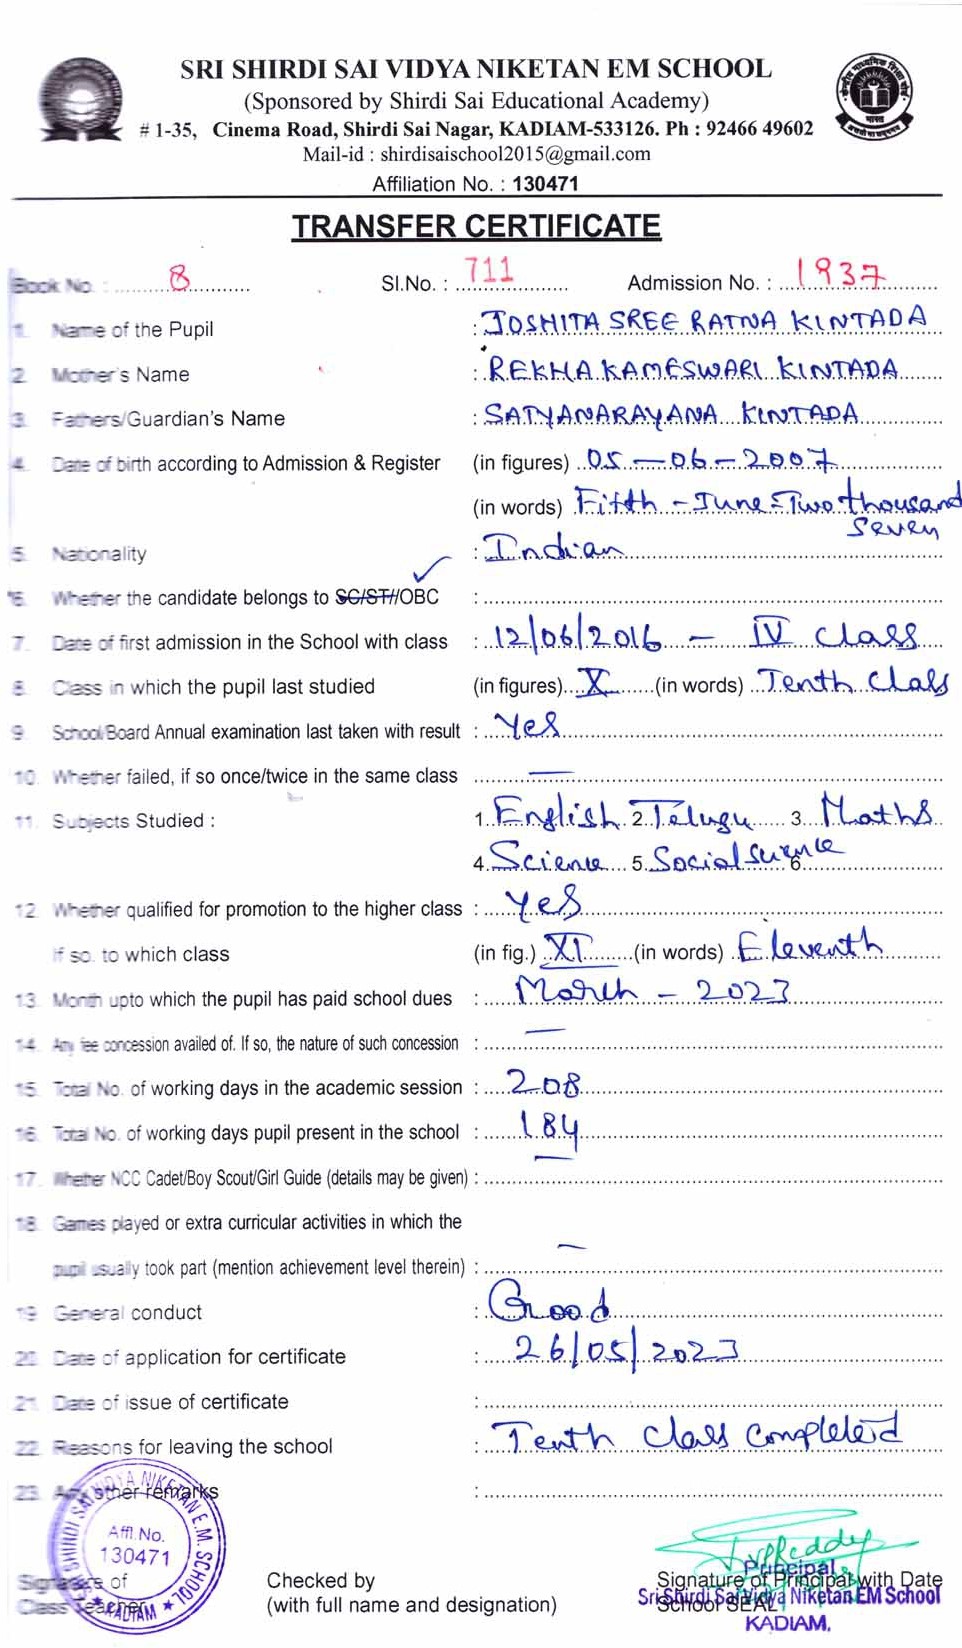 SRI SHIRDI SAI VIDYA NIKETAN EM SCHOOL
(Sponsored by Shirdi Sai Educational Academy)
# 1-35, Cinema Road, Shirdi Sai Nagar, KADIAM-533126. Ph : 92466 49602
Mail-id : shirdisaischool2015@gmail.com
Affiliation No. : 130471
TRANSFER CERTIFICATE
Book No. : 8 Sl.No. : 711 Admission No. : 1937
1. Name of the Pupil : JOSHITA SREE RATNA KINTADA
2. Mother's Name : REKHA KAMESWARI KINTADA
3. Fathers/Guardian's Name : SATYANARAYANA KINTADA
4. Date of birth according to Admission & Register (in figures) 05-06-2007
(in words) Fifth - June - Two thousand
Seven
5. Nationality : Indian
*6. Whether the candidate belongs to SC/ST//OBC :
7. Date of first admission in the School with class : 12/06/2016 - IV Class
8. Class in which the pupil last studied (in figures) X (in words) Tenth Class
9. School/Board Annual examination last taken with result : Yes
10. Whether failed, if so once/twice in the same class —
11. Subjects Studied : 1. English 2. Telugu 3. Maths
4. Science 5. Social Science 6.
12. Whether qualified for promotion to the higher class : Yes
if so. to which class (in fig.) XI (in words) Eleventh
13. Month upto which the pupil has paid school dues : March - 2023
14. Any fee concession availed of. If so, the nature of such concession : —
15. Total No. of working days in the academic session : 208
16. Total No. of working days pupil present in the school : 184
17. Whether NCC Cadet/Boy Scout/Girl Guide (details may be given) : —
18. Games played or extra curricular activities in which the
pupil usually took part (mention achievement level therein) : —
19. General conduct : Good
20. Date of application for certificate : 26/05/2023
21. Date of issue of certificate :
22. Reasons for leaving the school : Tenth Class Completed
23. Any other remarks :
SHIRDI SAI VIDYA NIKETAN E.M. SCHOOL
Affl.No.
130471
★ KADIAM ★
Signature of
Class Teacher
Checked by
(with full name and designation)
Principal
Signature of Principal with Date
Sri Shirdi Sai Vidya Niketan EM School
School SEAL
KADIAM.